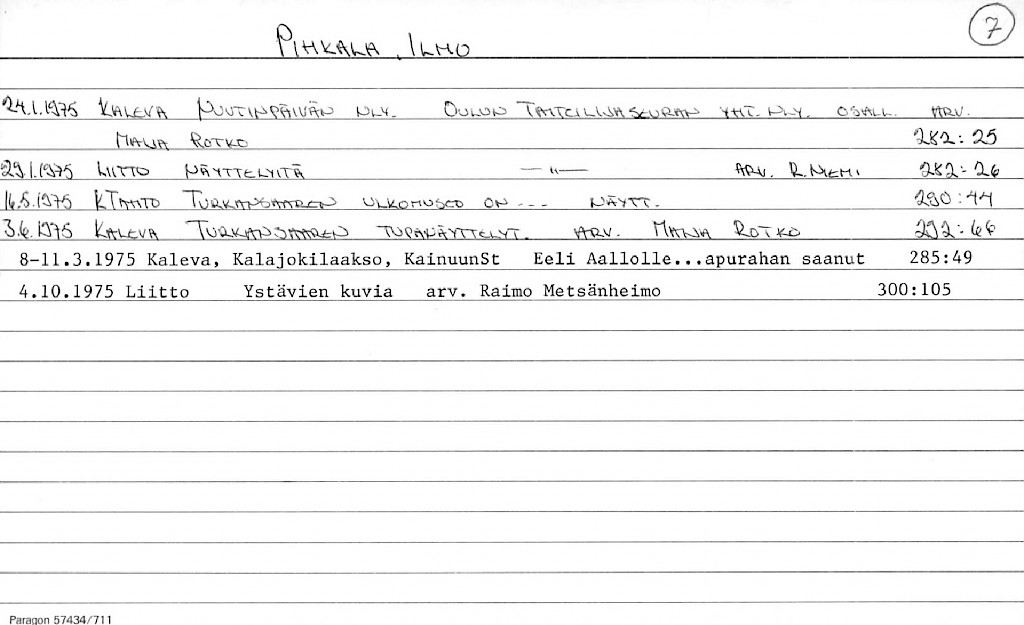 7
PIHKALA, ILMO
24.1.1975 KALEVA NUUTINPÄIVÄN NLY. OULUN TAITEILIJASEURAN YHT. NLY. OSALL. ARV.
MAIJA ROTKO 282:25
29.1.1975 LIITTO NÄYTTELYITÄ —"— ARV. R. NIEMI 282:26
16.5.1975 KTAHTO TURKANSAAREN ULKOMUSEO ON --- NÄYTT. 290:44
3.6.1975 KALEVA TURKANSAAREN TUPANÄYTTELYT. ARV. MAIJA ROTKO 292:66
8-11.3.1975 Kaleva, Kalajokilaakso, KainuunSt Eeli Aallolle...apurahan saanut 285:49
4.10.1975 Liitto Ystävien kuvia arv. Raimo Metsänheimo 300:105
Paragon 57434/711